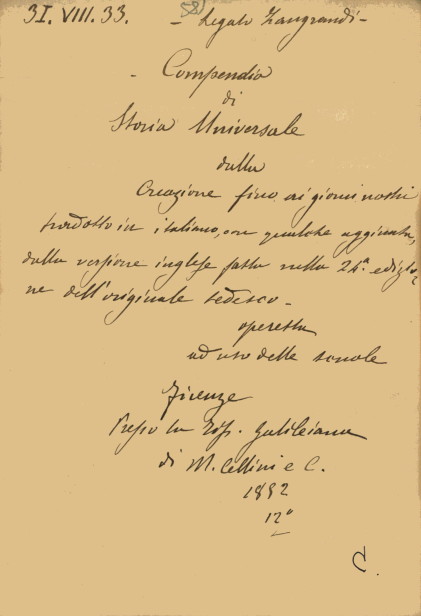 31. VIII. 33. - Legato Zangrandi -
- Compendio
di
Storia Universale
dalla
Creazione fino ai giorni nostri
tradotto in italiano, con qualche aggiunta,
dalla versione inglese fatta nella 24ª edizio
ne dell'originale tedesco -
operetta
ad uso delle scuole
Firenze
Presso la Tip. Galileiana
di M. Cellini e C.
12°
C.